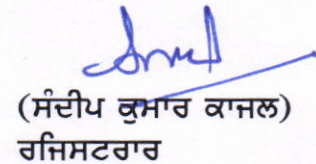 (ਸੰਦੀਪ ਕੁਮਾਰ ਕਾਜਲ)
ਰਜਿਸਟਰਾਰ